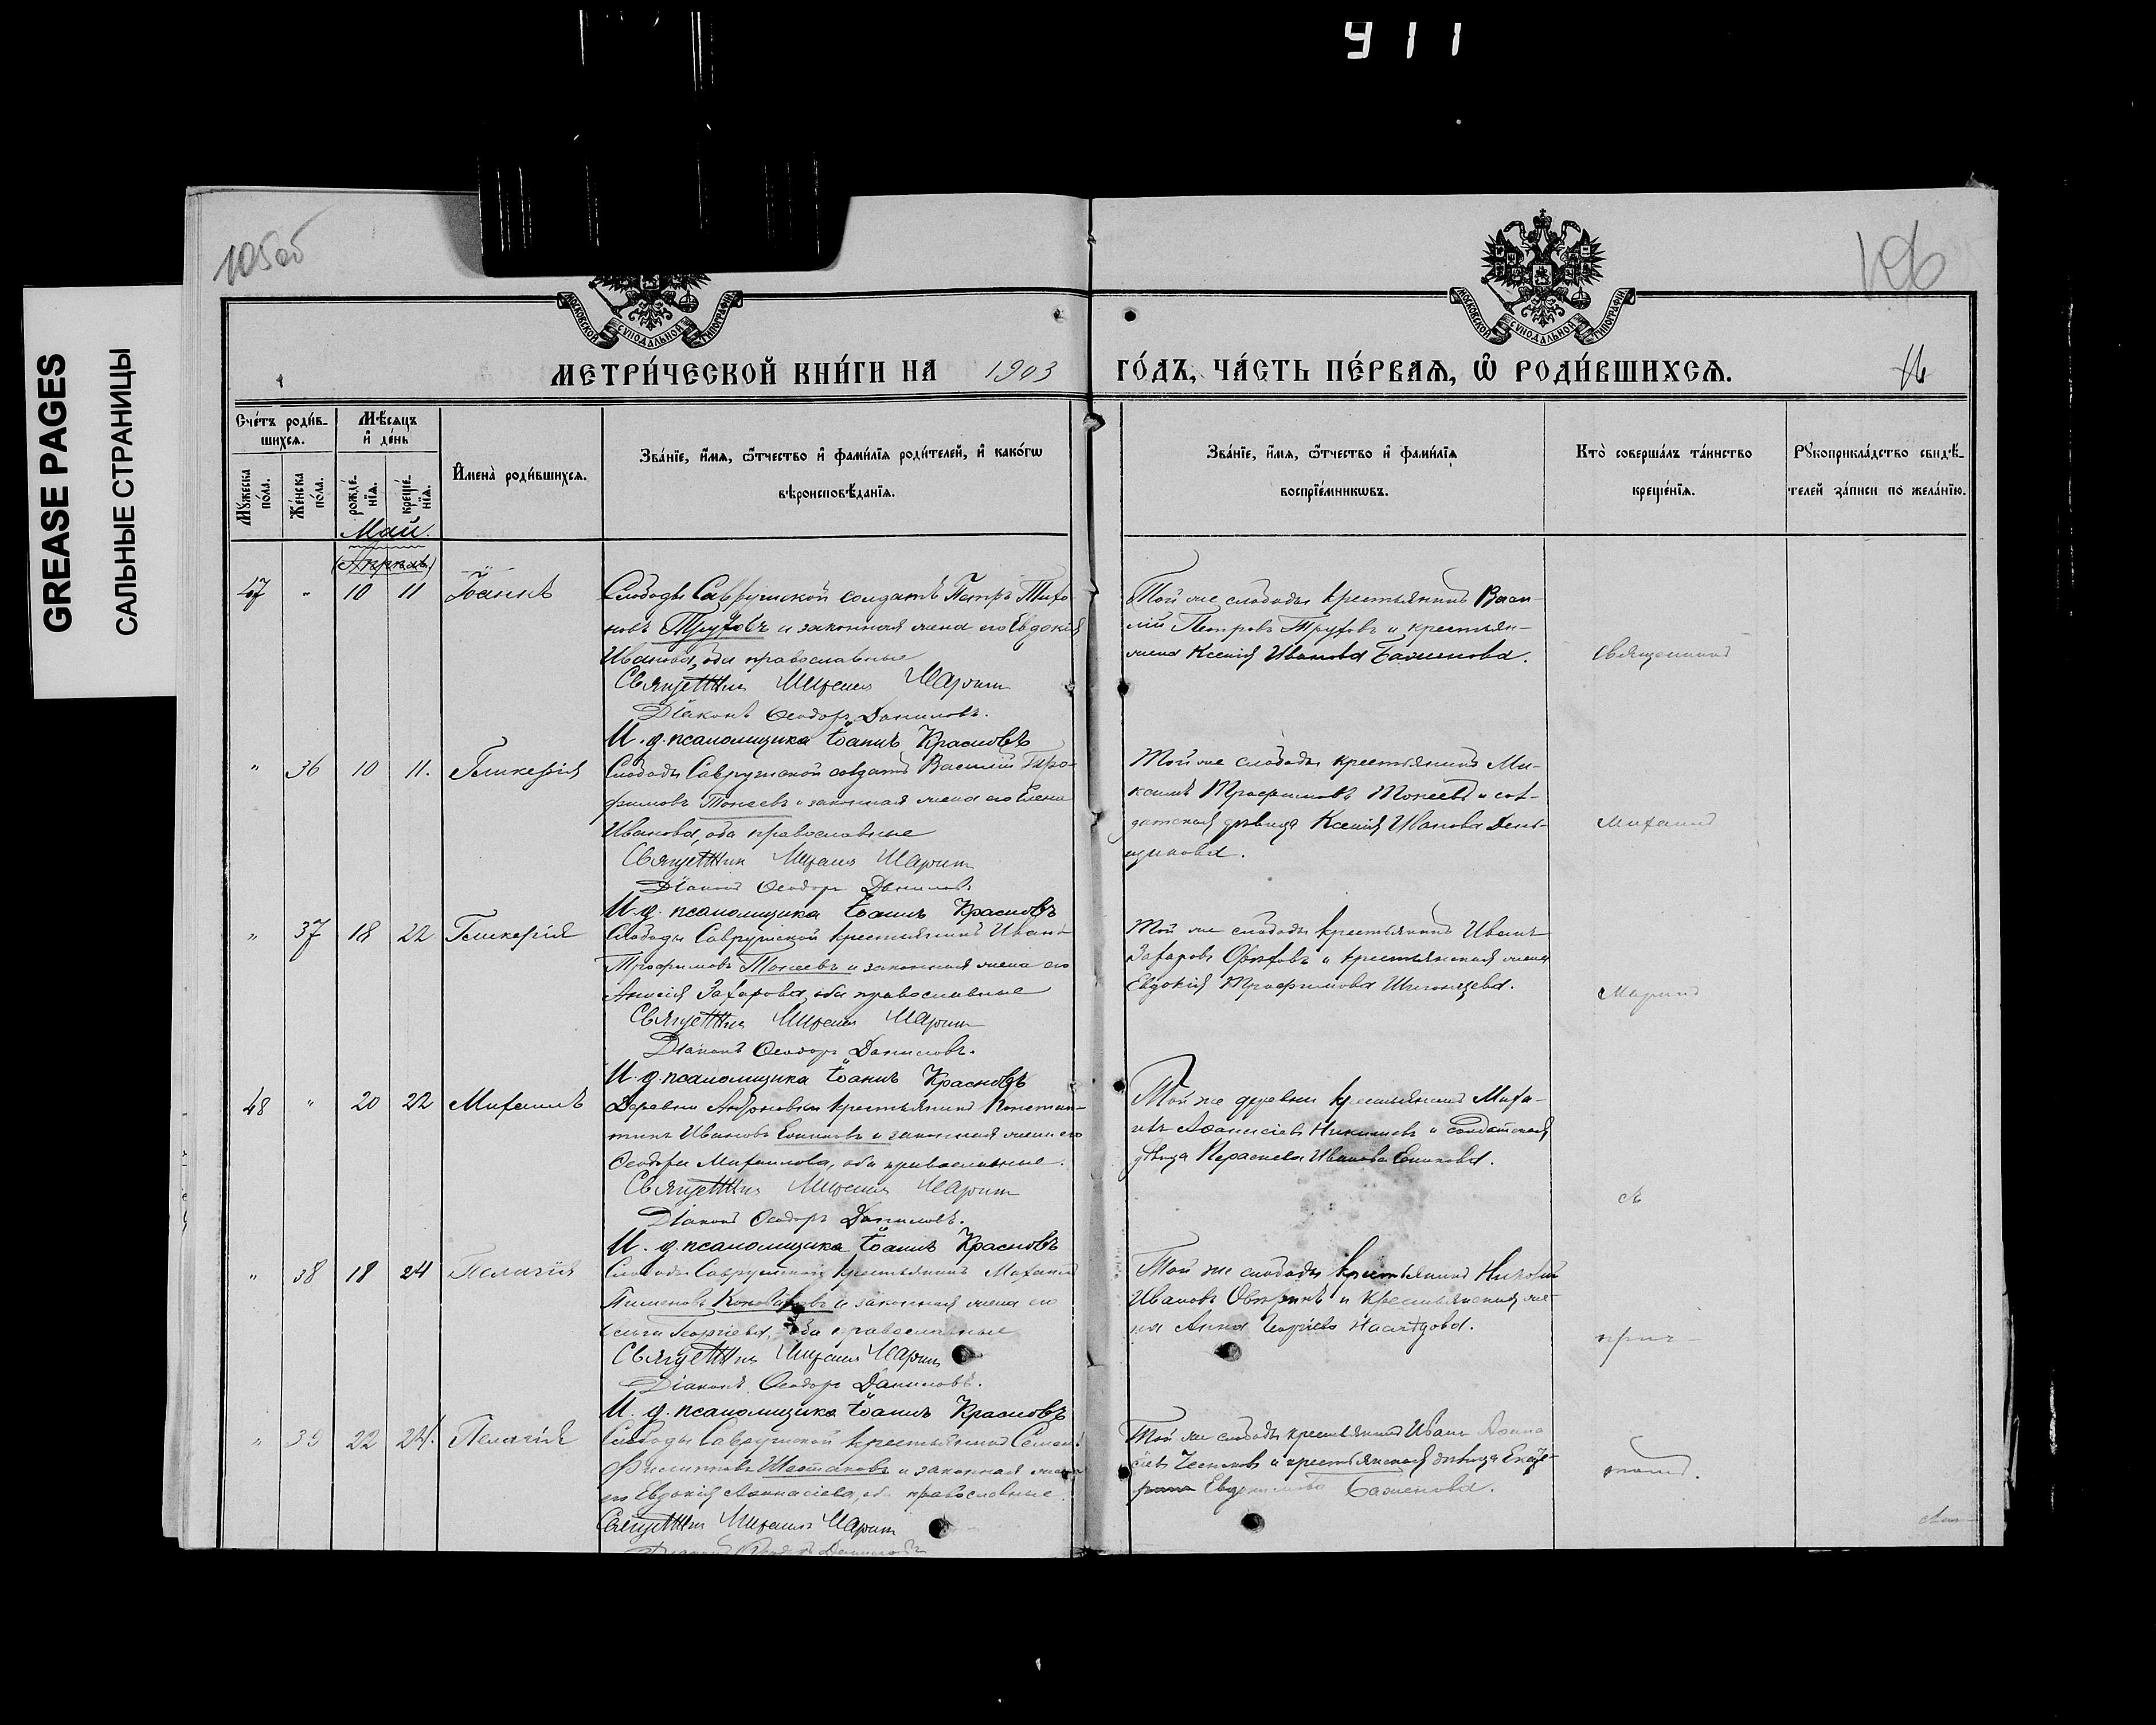 911
GREASE PAGES
САЛЬНЫЕ СТРАНИЦЫ
105об
106
МОСКОВСКОЙ СУНОДАЛЬНОЙ ТИПОГРАФІИ
МОСКОВСКОЙ СУНОДАЛЬНОЙ ТИПОГРАФІИ
МЕТРИ́ЧЕСКОЙ КНИ́ГИ НА 1903 ГО́ДЪ, ЧА́СТЬ ПЕ́РВАЯ, Ѡ РОДИ́ВШИХСЯ.
Сче́тъ роди́в-
шихся.
Мꙋжеска по́ла.
Же́нска по́ла.
Мѣ́сяцъ и де́нь
рожде́-нїя.
креще́-нїя.
И҆мена̀ роди́вшихся.
Зва́нїе, и҆́мя, ѻ҆́тчество и҆ фами́лїя роди́телей, и҆ како́гѡ
вѣроисповѣ́данїя.
Зва́нїе, и҆́мя, ѻ҆́тчество и҆ фами́лїя
воспрїе́мникѡвъ.
Кто̀ соверша́лъ та́инство
креще́нїя.
Рꙋкоприкла́дство свидѣ́-
телей за́писи по жела́нїю.
Май.
(Апрѣль)
47 " 10 11 Іоаннъ
Слободы Саврушской солдатъ Петръ Тихо
новъ Труфовъ и законная жена его Евдокія
Иванова, оба православные
Священникъ Михаилъ
Діаконъ Ѳеодоръ Даниловъ.
И. д. псаломщика Іоаннъ Красновъ
Той же слободы крестьянинъ Васи-
лій Петровъ Труфовъ и крестьян-
жена Ксенія Иванова Баженова.
Священникъ
" 36 10 11. Гликерія
Слободы Саврушской солдатъ Василій Тро-
фимовъ Токеевъ и законная жена его Елена
Иванова, оба православные
Священникъ Михаилъ
Діаконъ Ѳеодоръ Даниловъ
И. д. псаломщика Іоаннъ Красновъ
Той же слободы крестьянинъ Ма-
ксимъ Трофимовъ Токеевъ и сол-
датская дѣвица Ксенія Иванова День-
щикова.
Михаилъ
" 37 18 22 Гликерія
Слободы Саврушской крестьянинъ Иванъ
Трофимовъ Токеевъ и законная жена его
Анисія Захарова, оба православные
Священникъ Михаилъ
Діаконъ Ѳеодоръ Даниловъ.
И. д. псаломщика Іоаннъ Красновъ
Той же слободы крестьянинъ Иванъ
Захаровъ и крестьянская жена
Евдокія Трофимова
48 " 20 22 Михаилъ
Деревни крестьянинъ Констан-
тинъ Ивановъ и законная жена его
Ѳеодора Михаилова, оба православные.
Священникъ Михаилъ
Діаконъ Ѳеодоръ Даниловъ.
И. д. псаломщика Іоаннъ Красновъ
Той же деревни крестьянинъ Миха-
илъ Аѳанасіевъ и солдатская
дѣвица Параскева Иванова
съ
" 38 18 24 Пелагія
Слободы Саврушской крестьянинъ Михаилъ
Пименовъ Коноваловъ и законная жена его
Георгіева, оба православные
Священникъ Михаилъ
Діаконъ Ѳеодоръ Даниловъ.
И. д. псаломщика Іоаннъ Красновъ
Той же слободы крестьянинъ Николай
Ивановъ и крестьянская же-
на Анна Георгіева
прич-
" 39 22 24. Пелагія
Слободы Саврушской крестьянинъ Семенъ
Филипповъ Шестаковъ и законная жена
его Евдокія Аѳанасіева, оба православные
Священникъ Михаилъ
Діаконъ Ѳеодоръ Даниловъ
Той же слободы крестьянинъ Иванъ Аѳана
сіевъ и крестьянская дѣвица Екате-
рина Евдокимова Баженова.
томъ.